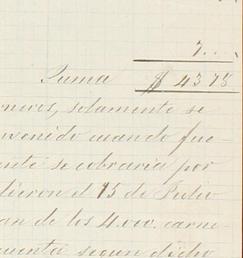 7..
Suma $ 4375
neros, solamente se
venido cuando fue
ente se cobraria por
dieron el 15 de Julio
an de los 4.000. carne
cuenta segun dicho